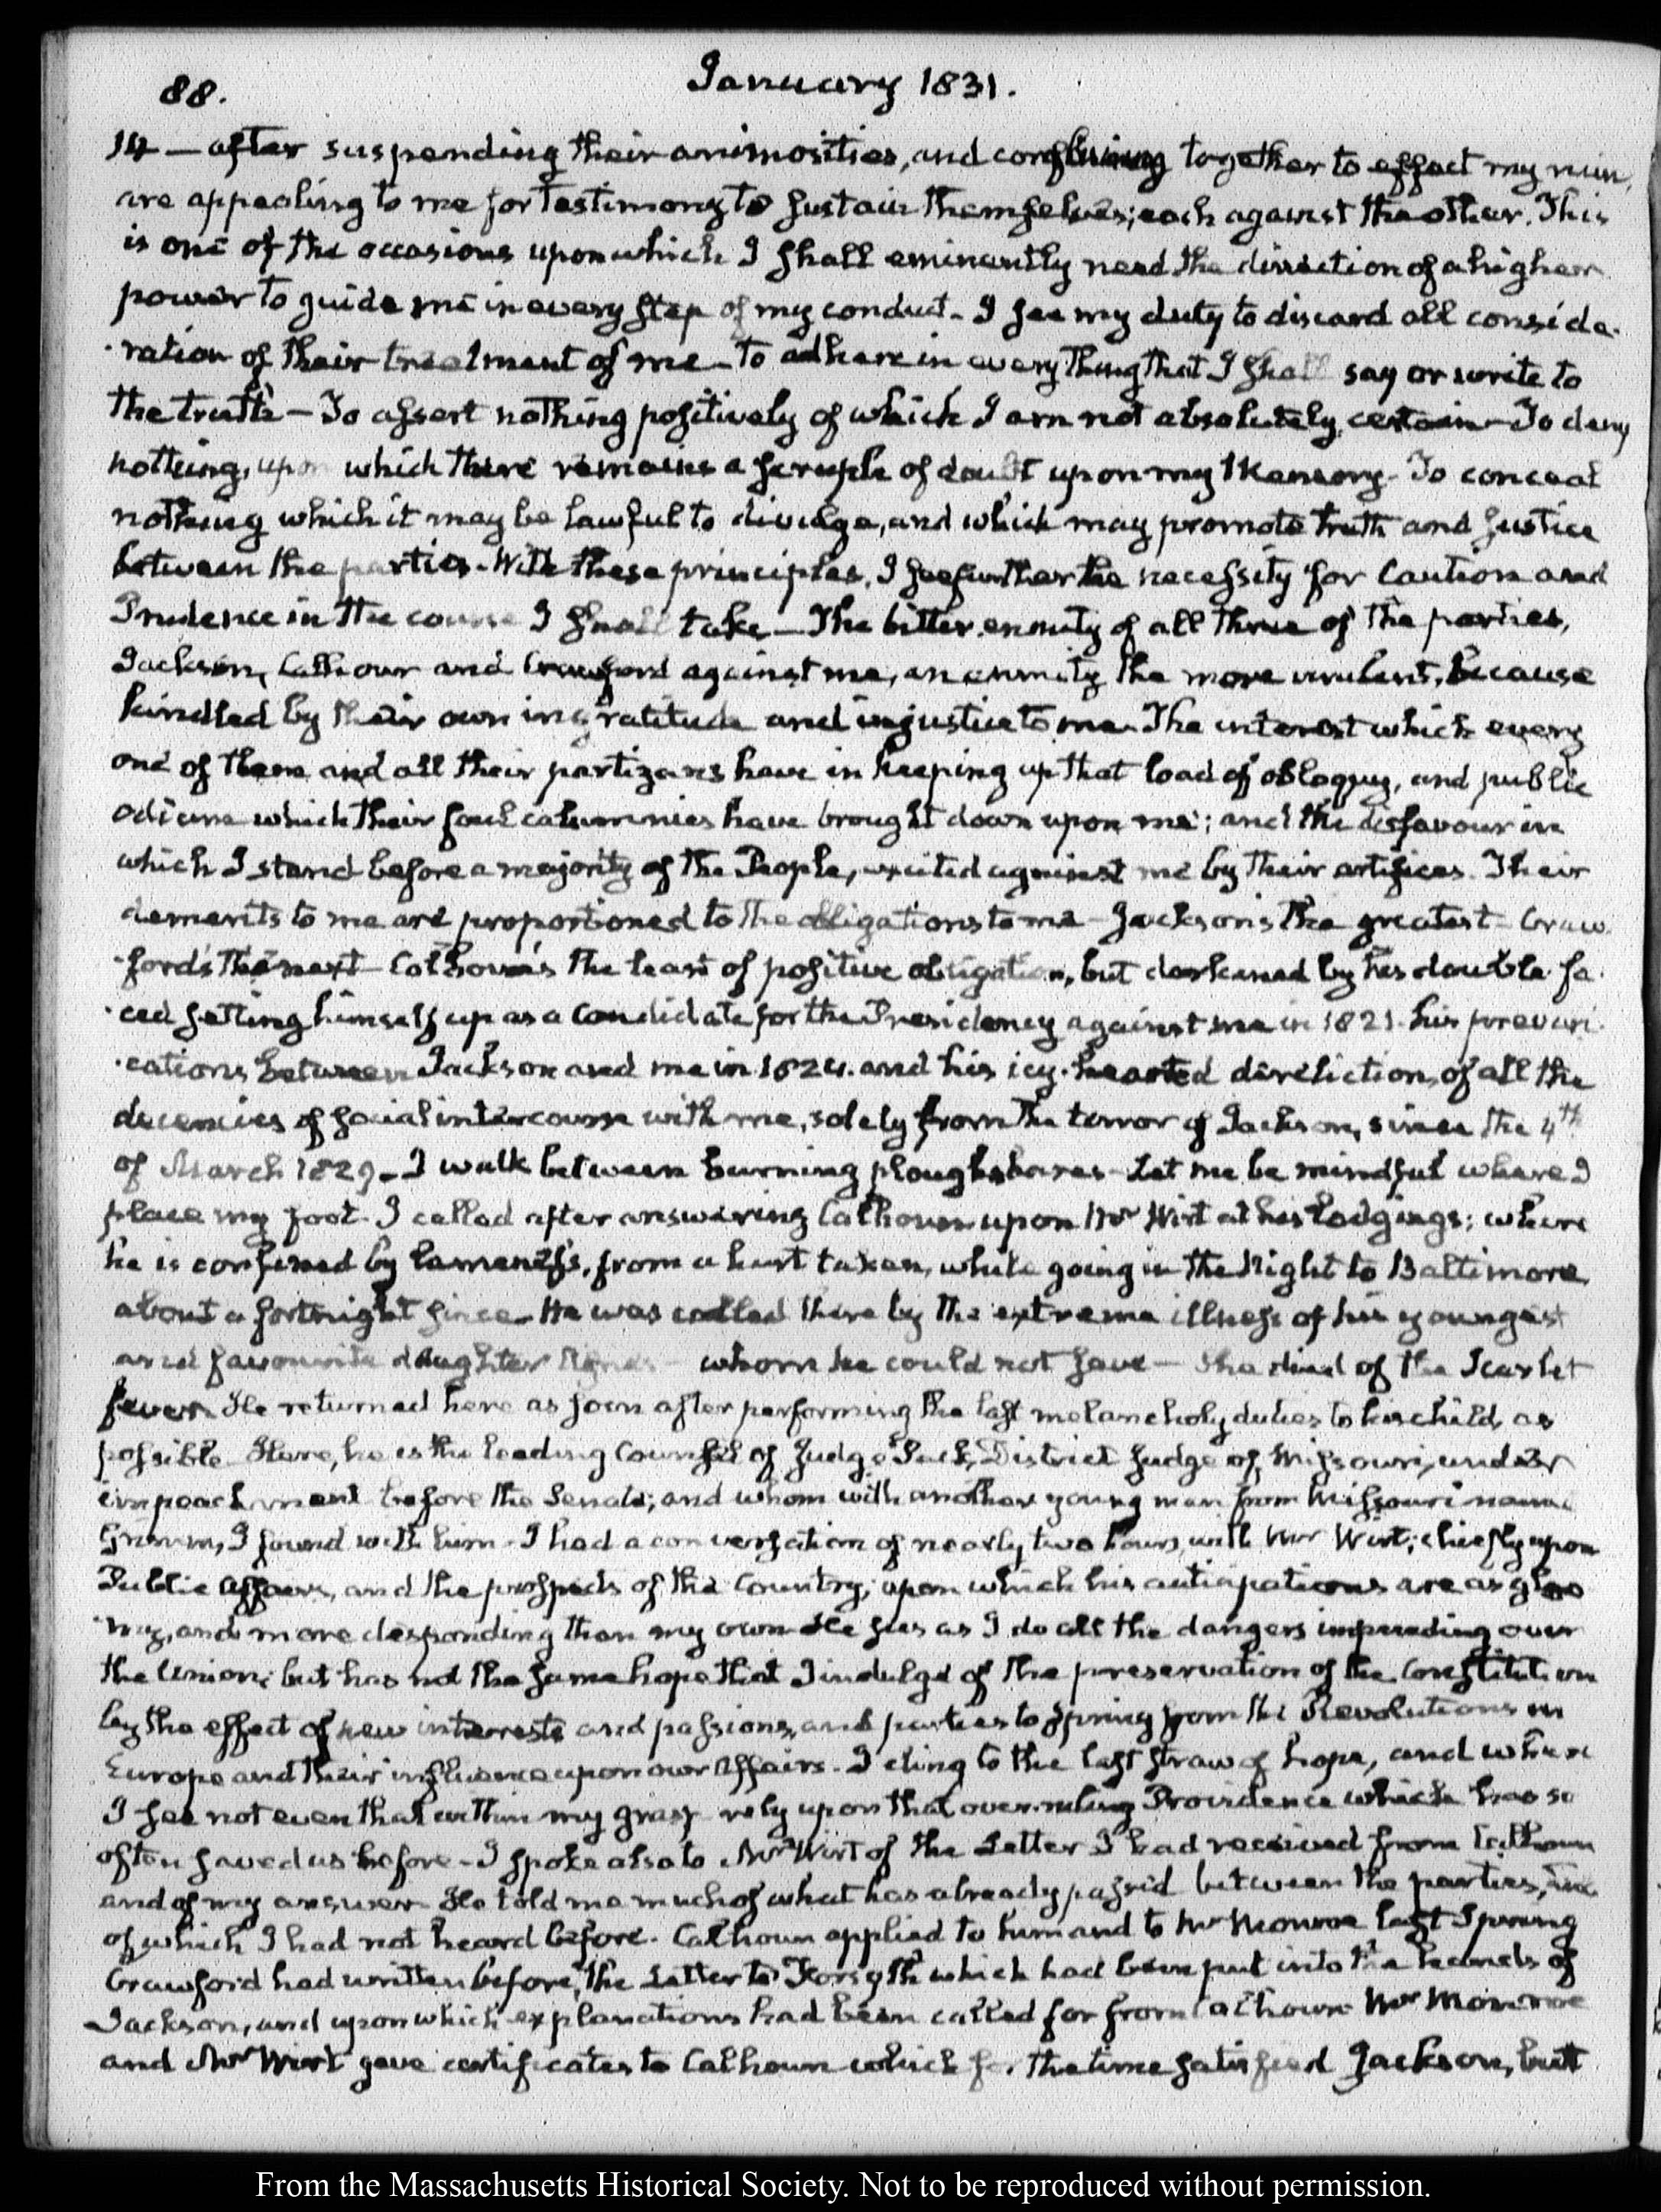 88.
January 1831.
14 — after suspending their animosities, and combining together to effect my ruin,
are appealing to me for Testimony to sustain themselves; each against the other. This
is one of the occasions upon which I shall eminently need the direction of a higher
power to guide me in every step of my conduct. I see my duty to discard all conside-
-ration of their treatment of me — to adhere in every thing that I shall say or write to
the truth — To assert nothing positively of which I am not absolutely certain — To deny
nothing, upon which there remains a scruple of doubt upon my Memory — To conceal
nothing which it may be lawful to divulge, and which may promote truth and justice
between the parties — With these principles, I see further the necessity for Caution and
Prudence in the course I shall take — The bitter enmity of all three of the parties,
Jackson, Calhoun and Crawford against me, an enmity the more virulent, because
kindled by their own ingratitude and injustice to me. The interest which every
one of them and all their partizans have in keeping up that load of obloquy, and public
odium which their foul calumnies have brought down upon me; and the disfavour in
which I stand before a majority of the People, excited against me by their artifices. Their
demerits to me are proportioned to the obligations to me — Jackson's the greatest — Craw-
-ford's the next — Calhoun's the least of positive obligation, but darkened by his double-fa-
-ced setting himself up as a Candidate for the Presidency against me in 1821. his prevari-
-cations between Jackson and me in 1824. and his icy-hearted dereliction, of all the
decencies of social intercourse with me, solely from the terror of Jackson, since the 4th
of March 1829 — I walk between burning ploughshares — Let me be mindful where I
place my foot. I called after answering Calhoun upon Mr Wirt at his lodgings; where
he is confined by lameness, from a hurt taken, while going in the Night to Baltimore,
about a fortnight since. He was called there by the extreme illness of his youngest
and favourite daughter Agnes — whom he could not save — She died of the Scarlet
fever. He returned here as soon after performing the last melancholy duties to his child, as
possible. Here, he is the leading Counsel of Judge Peck, District Judge of Missouri, under
impeachment before the Senate; and whom with another young man from Missouri named
I found with him. I had a conversation of nearly two hours, with Mr Wirt; chiefly upon
Public Affairs, and the prospects of the Country; upon which his anticipations are as gloo-
-my, and more desponding than my own — He sees as I do all the dangers impending over
the Union; but has not the same hope that I indulge of the preservation of the Constitution
by the effect of new interests and passions, and parties to spring from the Revolutions in
Europe and their influence upon our Affairs. I cling to the last straw of hope, and when
I see not even that within my grasp rely upon that overruling Providence which has so
often saved us before. I spoke also to Mr Wirt of the Letter I had received from Calhoun
and of my answer. He told me much of what has already passed between the parties,
of which I had not heard before. Calhoun applied to him and to Mr Monroe last Spring
Crawford had written before, the Letter to Forsyth which had been put into the hands of
Jackson, and upon which explanations had been called for from Calhoun. Mr Monroe
and Mr Wirt gave certificates to Calhoun which for the time satisfied Jackson, but
From the Massachusetts Historical Society. Not to be reproduced without permission.